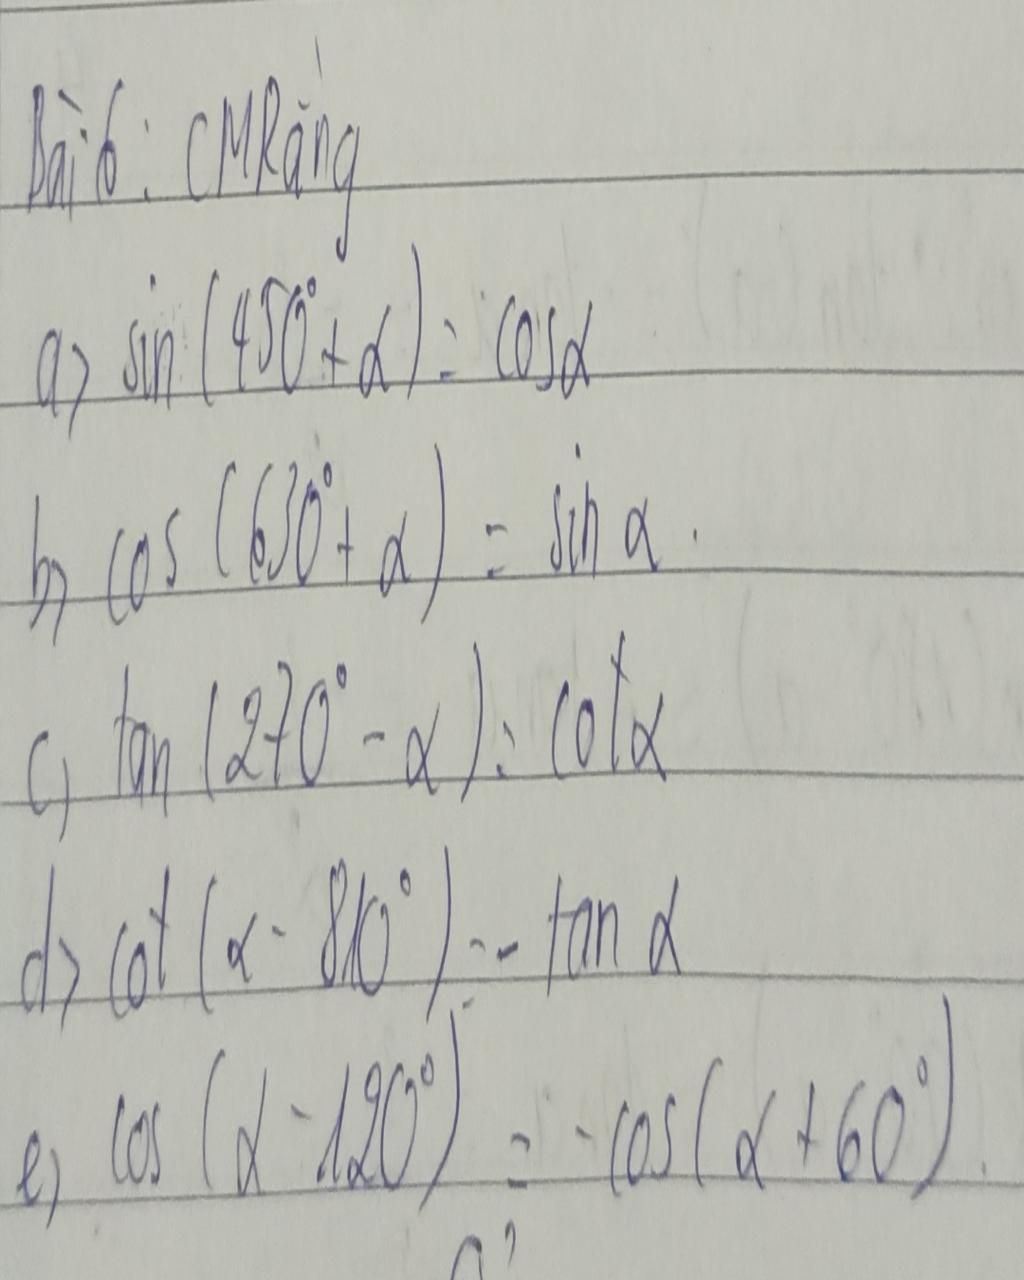 Bài 6: CMRằng
a) sin (450° + α) = cosα
b) cos (630° + α) = sin α.
c) tan (270° - α) = cotα
d) cot (α - 810°) = - tan α
e) cos (α - 120°) = - cos (α + 60°).